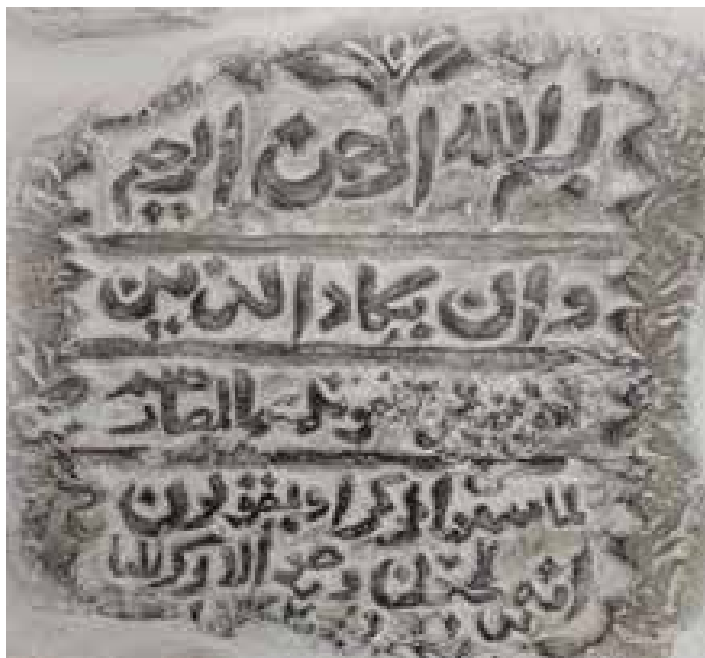 بسم الله الرحمن الرحیم
وان یکاد الذین
بابصارهم
لما سمعوا الذکر ویقولون
انه لمجنون وما هو الا ذکر للعا